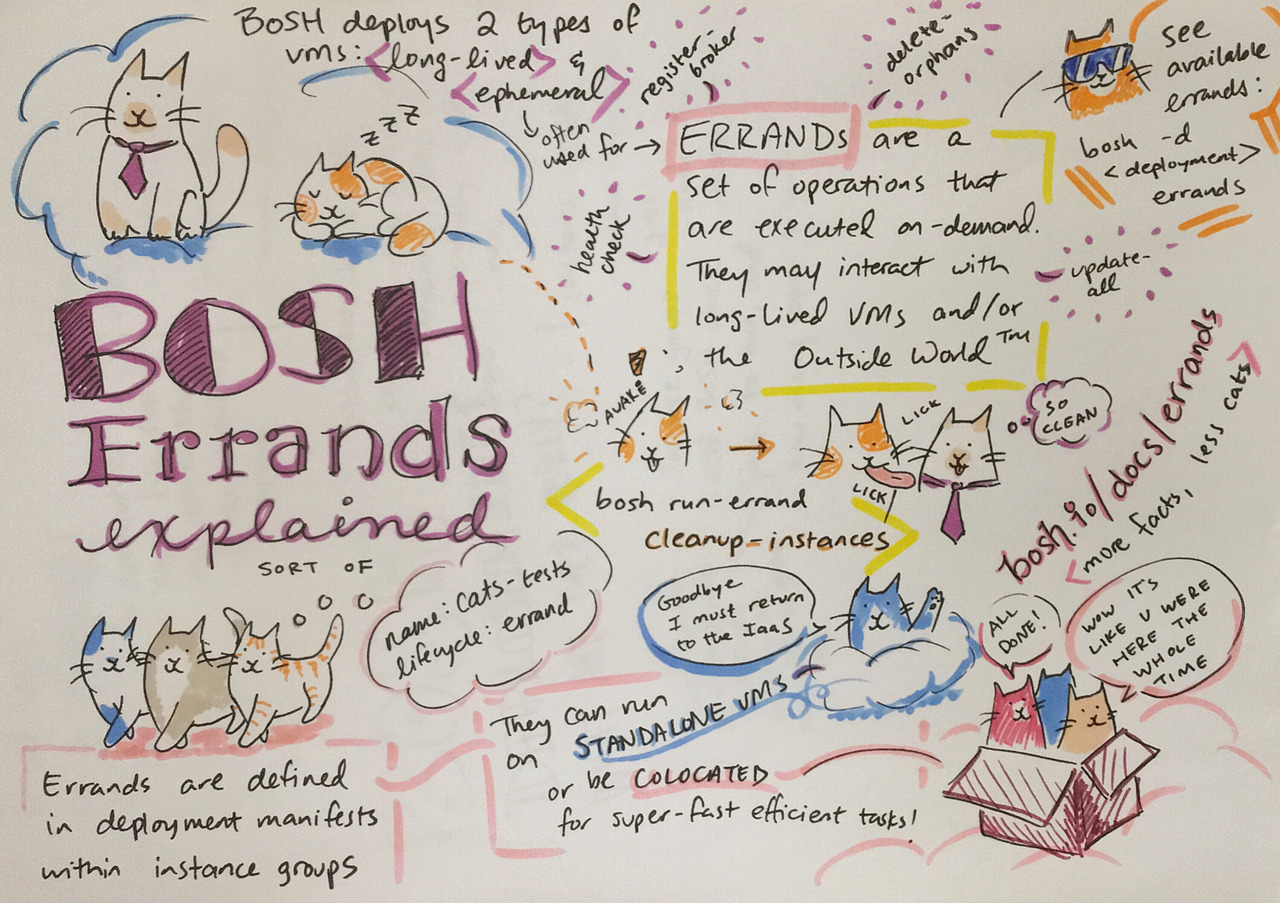 BOSH deploys 2 types of
vms: <long-lived> &
<ephemeral>
often
used for →
z z z
register-
broker
delete-
orphans
health
check
update-
all
ERRANDs are a
set of operations that
are executed on-demand.
They may interact with
long-lived VMs and/or
the Outside World™
see
available
errands:
bosh -d
<deployment>
errands
BOSH
Errands
explained
SORT OF
AWAKE
LICK
LICK
SO
CLEAN
bosh run-errand
cleanup-instances
bosh.io/docs/errands
<more facts, less cats>
name: cats-tests
lifecycle: errand
Errands are defined
in deployment manifests
within instance groups
Goodbye
I must return
to the IaaS
They can run
on STANDALONE VMS
or be COLOCATED
for super-fast efficient tasks!
ALL
DONE!
WOW IT'S
LIKE U WERE
HERE THE
WHOLE
TIME